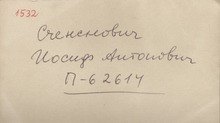 1532
Счененович
Иосиф Антонович
П-62617